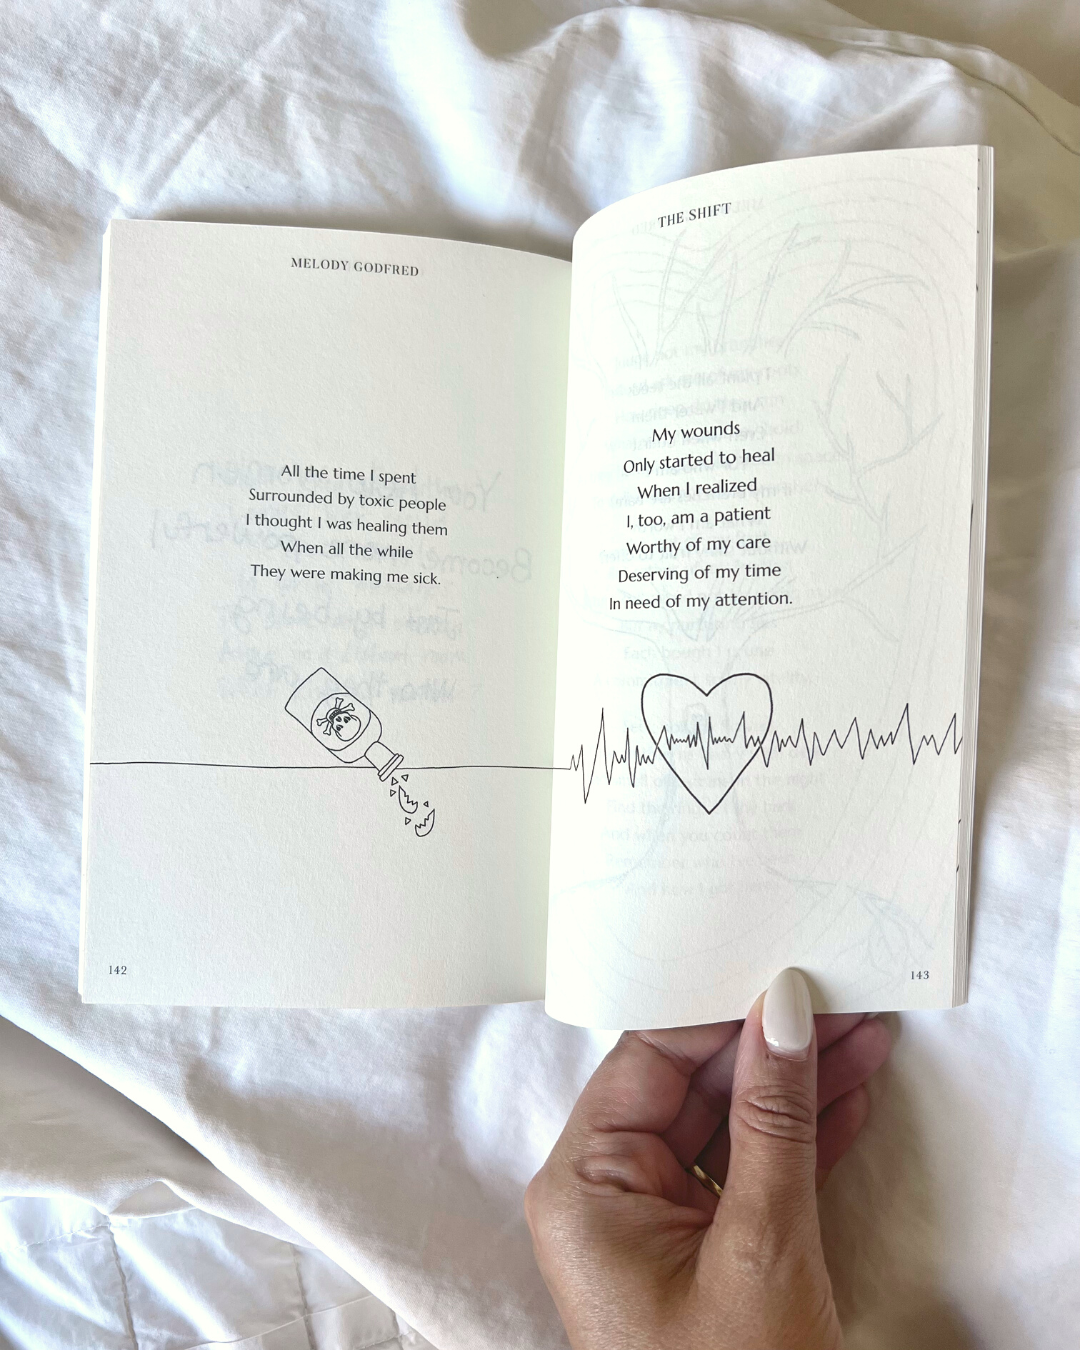 MELODY GODFRED
All the time I spent
Surrounded by toxic people
I thought I was healing them
When all the while
They were making me sick.
142
THE SHIFT
My wounds
Only started to heal
When I realized
I, too, am a patient
Worthy of my care
Deserving of my time
In need of my attention.
143